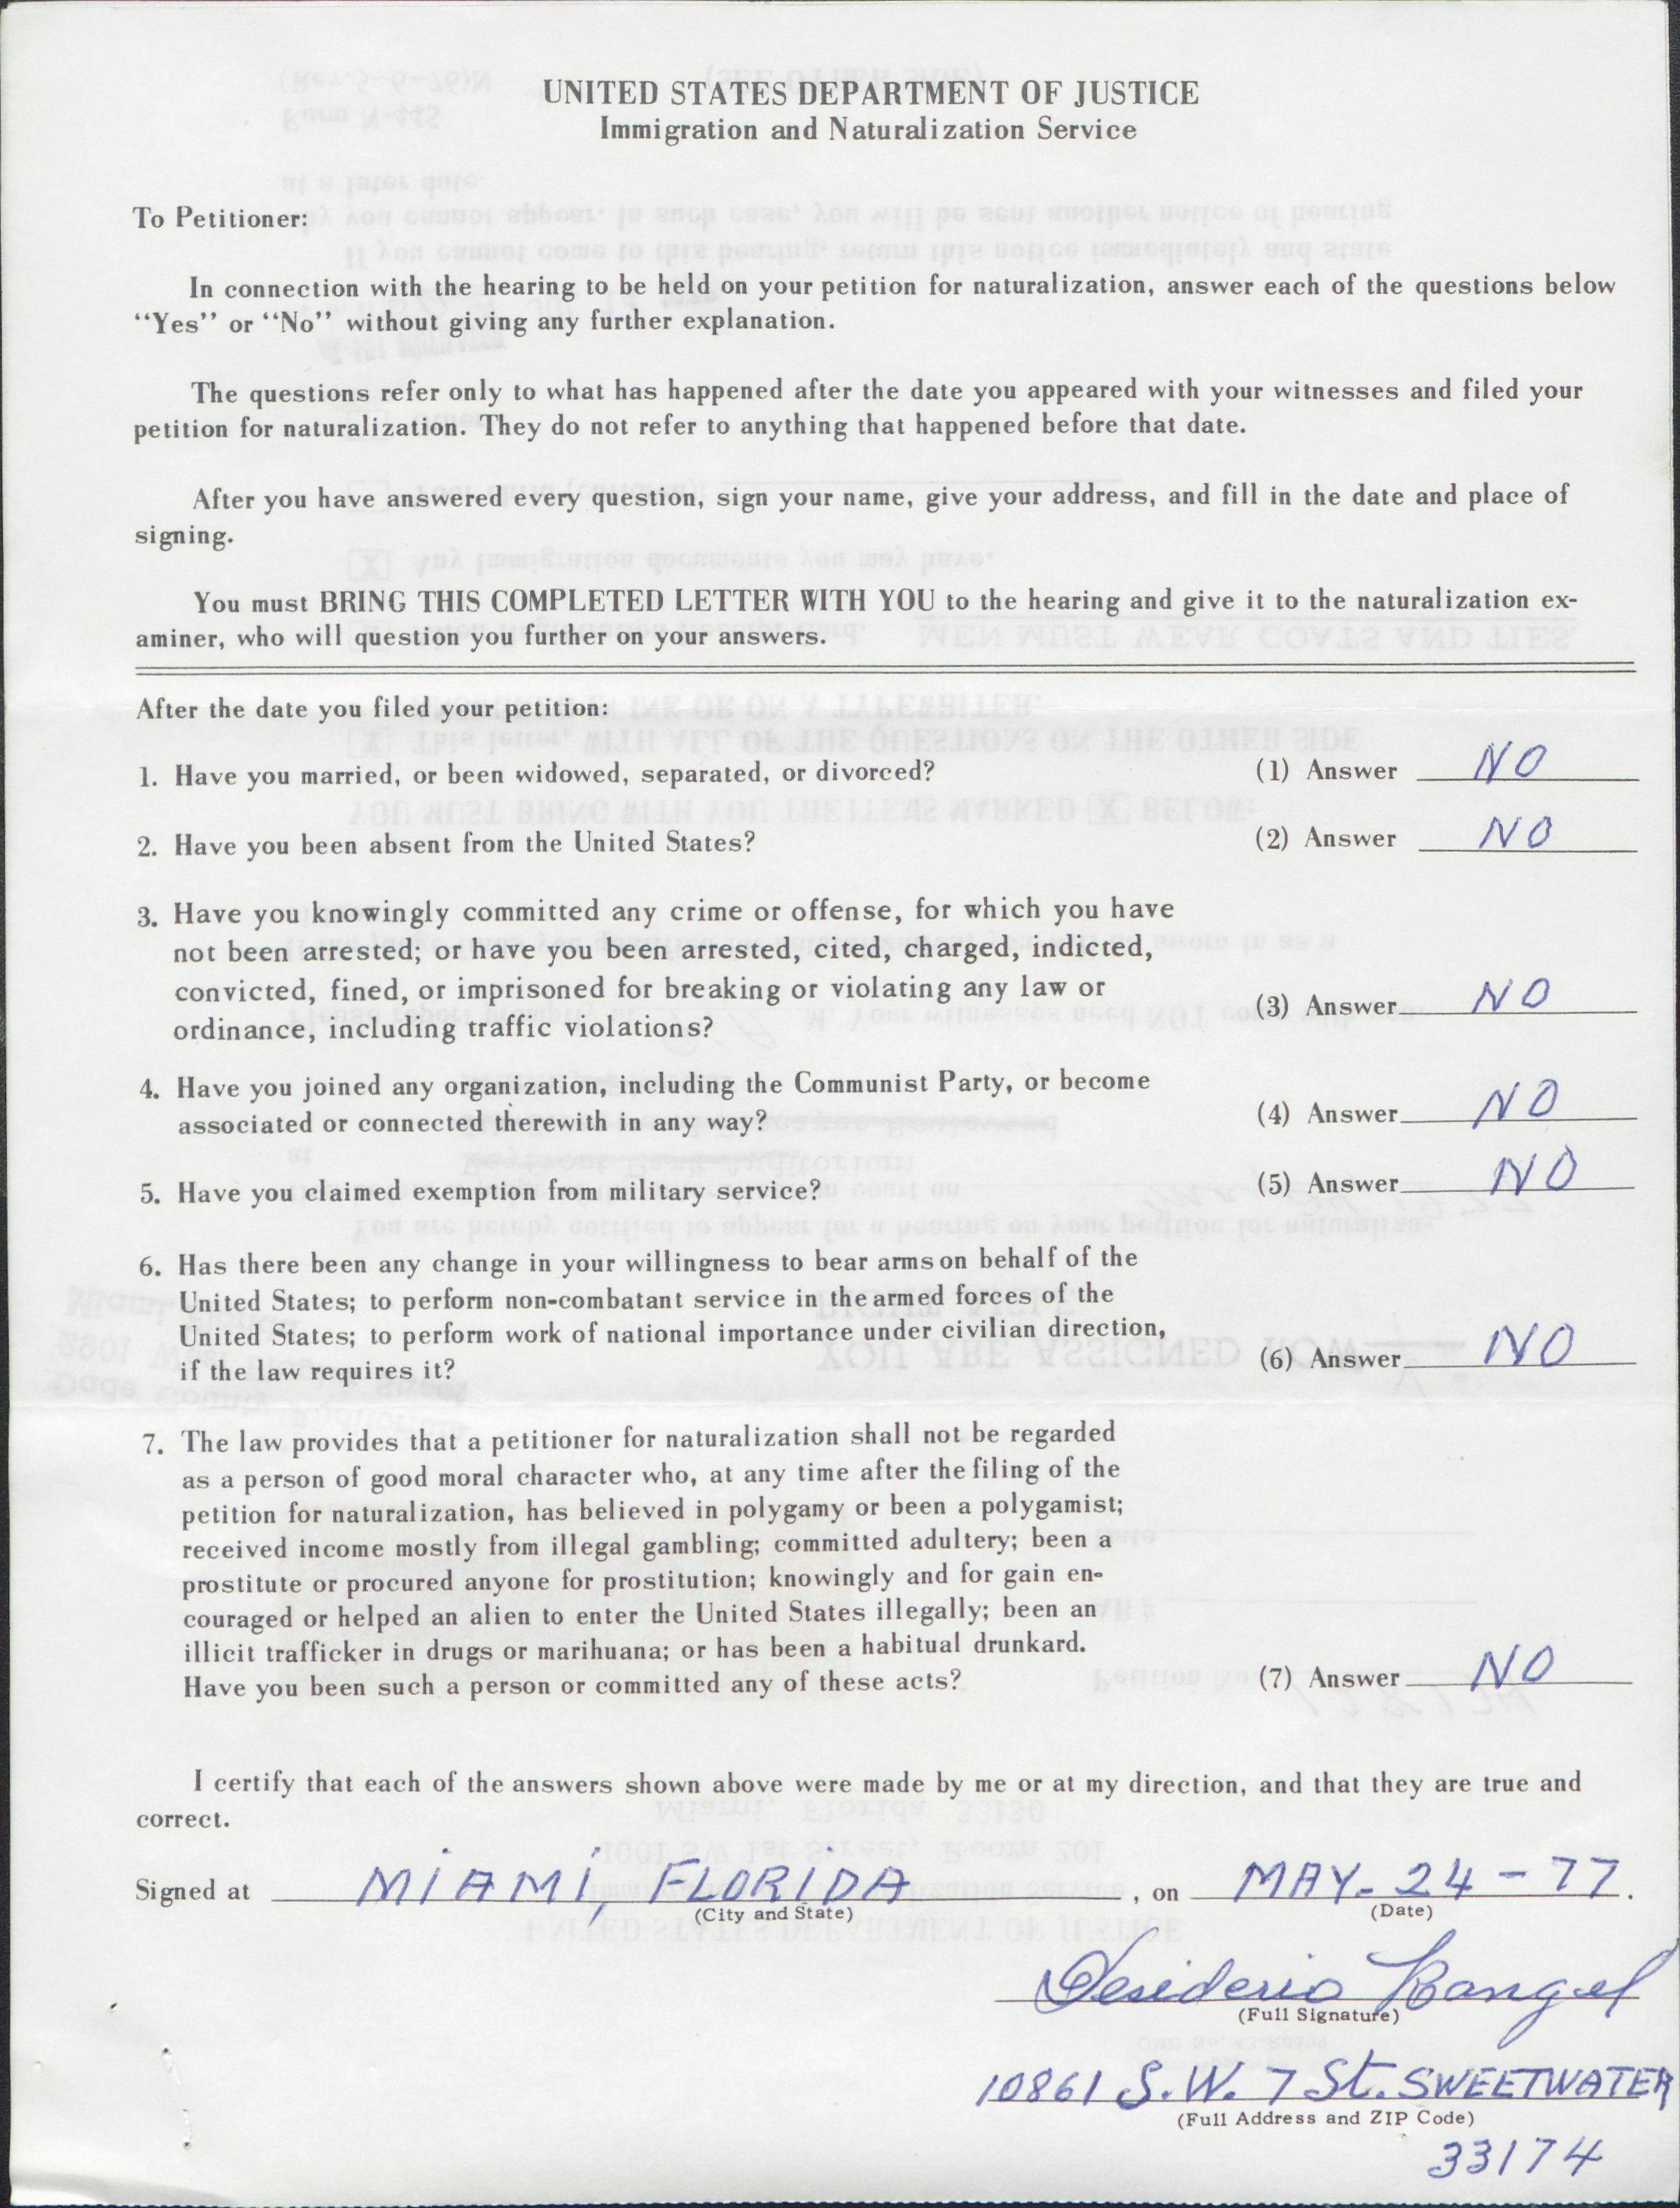 UNITED STATES DEPARTMENT OF JUSTICE
Immigration and Naturalization Service
To Petitioner:
In connection with the hearing to be held on your petition for naturalization, answer each of the questions below
“Yes” or “No” without giving any further explanation.
The questions refer only to what has happened after the date you appeared with your witnesses and filed your
petition for naturalization. They do not refer to anything that happened before that date.
After you have answered every question, sign your name, give your address, and fill in the date and place of
signing.
You must BRING THIS COMPLETED LETTER WITH YOU to the hearing and give it to the naturalization ex-
aminer, who will question you further on your answers.
After the date you filed your petition:
1. Have you married, or been widowed, separated, or divorced? (1) Answer NO
2. Have you been absent from the United States? (2) Answer NO
3. Have you knowingly committed any crime or offense, for which you have
not been arrested; or have you been arrested, cited, charged, indicted,
convicted, fined, or imprisoned for breaking or violating any law or
ordinance, including traffic violations? (3) Answer NO
4. Have you joined any organization, including the Communist Party, or become
associated or connected therewith in any way? (4) Answer NO
5. Have you claimed exemption from military service? (5) Answer NO
6. Has there been any change in your willingness to bear arms on behalf of the
United States; to perform non-combatant service in the armed forces of the
United States; to perform work of national importance under civilian direction,
if the law requires it? (6) Answer NO
7. The law provides that a petitioner for naturalization shall not be regarded
as a person of good moral character who, at any time after the filing of the
petition for naturalization, has believed in polygamy or been a polygamist;
received income mostly from illegal gambling; committed adultery; been a
prostitute or procured anyone for prostitution; knowingly and for gain en-
couraged or helped an alien to enter the United States illegally; been an
illicit trafficker in drugs or marihuana; or has been a habitual drunkard.
Have you been such a person or committed any of these acts? (7) Answer NO
I certify that each of the answers shown above were made by me or at my direction, and that they are true and
correct.
Signed at MIAMI, FLORIDA, on MAY-24-77.
(City and State) (Date)
Desiderio Rangel
(Full Signature)
10861 S.W. 7 St. SWEETWATER
(Full Address and ZIP Code)
33174